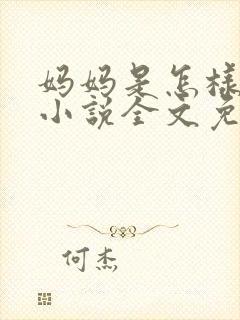 妈妈是怎样
小说全文免
何杰